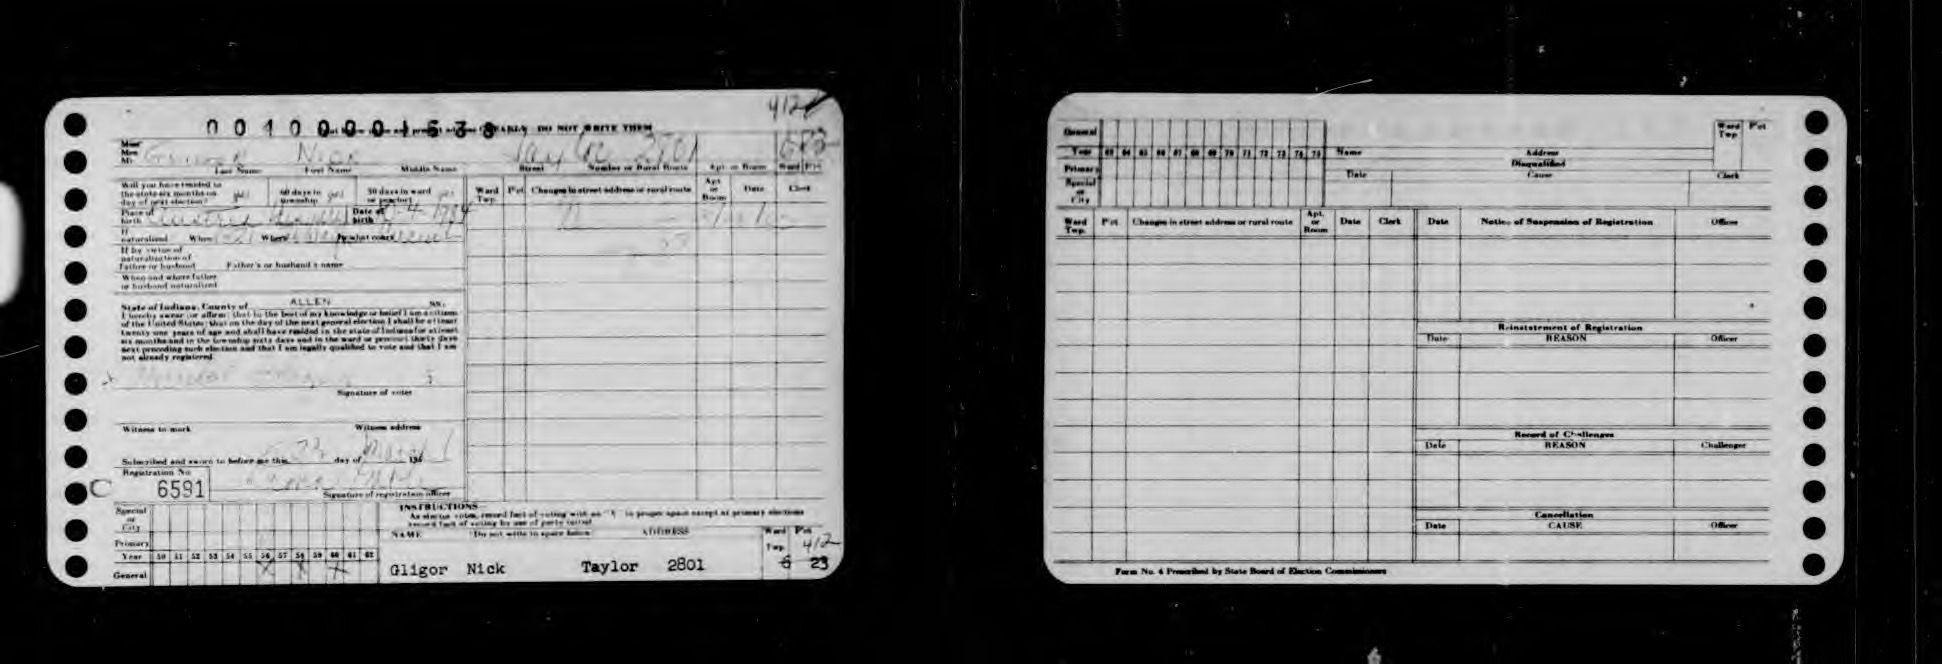 412
00100001538
EARLY DO NOT WRITE THEM
Miss
Mrs
Mr Gligor Nick Taylor 2801 6 23
Last Name First Name Middle Name Street Number or Rural Route Apt. or Room Ward Pct
Will you have resided in the state six months on day of next election? yes 60 days in township yes 30 days in ward or precinct yes
Ward Twp. Pct Changes in street address or rural route Apt. or Room Date Clerk
Place of birth Austria Date of birth 4 1904
If naturalized When Where By what court
If by virtue of naturalization of Father or husband Father's or husband's name
When and where father or husband naturalized
State of Indiana, County of ALLEN ss:
I hereby swear (or affirm) that to the best of my knowledge or belief I am a citizen
of the United States; that on the day of the next general election I shall be at least
twenty one years of age and shall have resided in the state of Indiana for at least
six months and in the township sixty days and in the ward or precinct thirty days
next preceding such election and that I am legally qualified to vote and that I am
not already registered.
Signature of voter
Witness to mark Witness address
Subscribed and sworn to before me this day of 195
Registration No
C 6591
Signature of registration officer
Special or City
Primary
Year 50 51 52 53 54 55 56 57 58 59 60 61 62
General X X X
INSTRUCTIONS
As elector votes, record fact of voting with an "X" in proper space except at primary elections
record fact of voting by use of party initial
NAME (Do not write in space below) ADDRESS Ward Twp. Pct
412
Gligor Nick Taylor 2801 6 23
General
Year 63 64 65 66 67 68 69 70 71 72 73 74 75
Primary
Special or City
Name Address
Ward Twp Pct
Disqualified
Date Cause Clerk
Ward Twp. Pct Changes in street address or rural route Apt. or Room Date Clerk
Date Notice of Suspension of Registration Officer
Reinstatement of Registration
Date REASON Officer
Record of Challenges
Date REASON Challenger
Cancellation
Date CAUSE Officer
Form No. 4 Prescribed by State Board of Election Commissioners
6